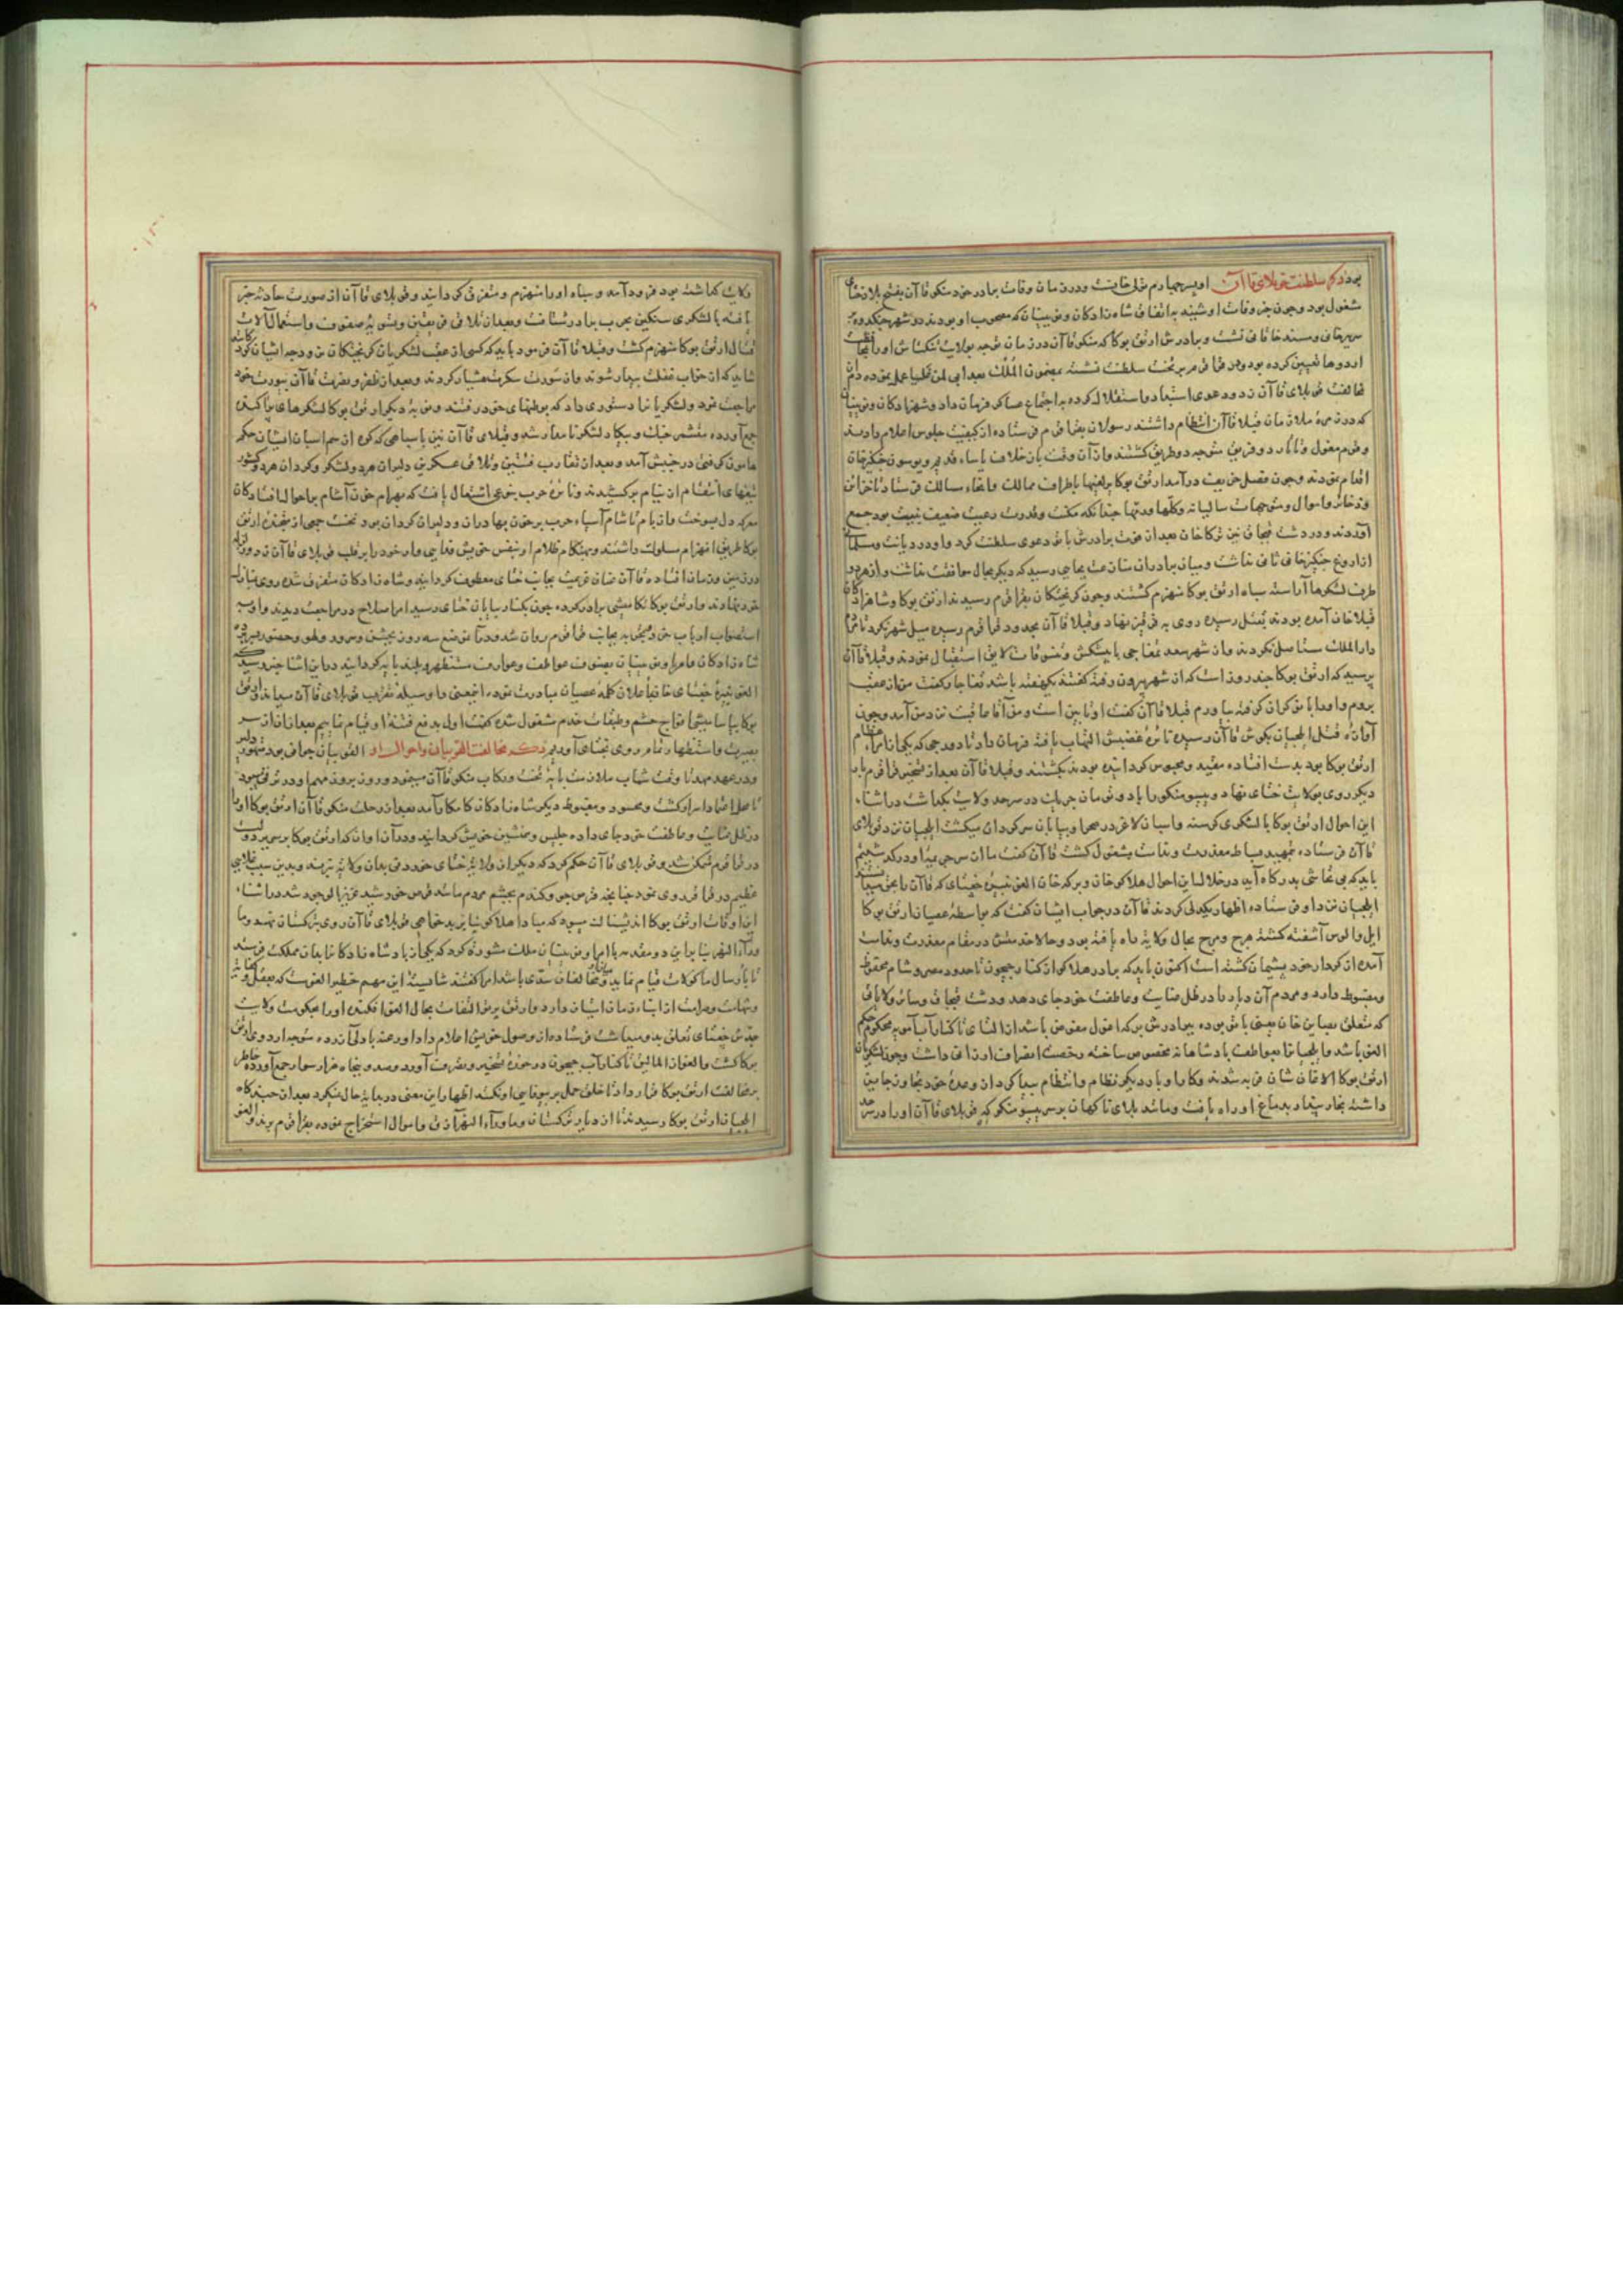 بود ذکر سلطنت قوبلای قاآن او پسر چهارم تولی خانست و در زمان وفات برادر خود منکوقاآن بفتح بلاد ختای
مشغول بود و چون خبر وفات او شنید به اتفاق شاهزادکان و نوینیان که مصحوب او بودند در شهر
سریر خانی و مسند خاقانی نشست و برادرش ارتق بوکا که منکوقاآن در زمان توجه بولایت ننکیاش او را
اردوها تعیین کرده بود و در قراقرم بر تخت سلطنت نشسته بمضمون الملک بعد ابی لمن غلبا عمل نموده دم
مخالفت قوبلای قاآن زد و دعوی استبداد و استقلال کرده به اجتماع عساکر فرمان داد و شهزادکان و نوینیان
که در زمره ملازمان قبلا قاآن انتظام داشتند رسولان بقراقرم فرستاده از کیفیت جلوس اعلام دادند
و قوم مغول و تاتار دو فریق متوجه دو طریق کشتند و از آن وقت باز خلاف یاساء قدیم و یوسون جنکیزخان
اغاز نمودند و چون فصل خریف درآمد ارتق بوکا یرلیغها باطراف ممالک و انحاء مسالک فرستاد تا خزاین
و ذخائر و اموال و متوجهات سالیانه و کلها و رمها چندانکه مکنت و قدرت رعیت ضعیف نیت بود جمع
آوردند و در دشت قبچاق نیز برکا خان بعد از فوت برادرش باتو دعوی سلطنت کرد و او در دیانت و مسلمانی
از اروغ جنکیزخان ثانی نداشت و میان برادران منازعت بجایی رسید که دیکر مجال موافقت نداشت و از هر دو
طرف لشکرها آراسته سپاه ارتق بوکا منهزم کشتند و چون کریختکان بقراقرم رسیدند ارتق بوکا و شاهزادکان
قبلا خان آمده بودند بقتل رسیده روی به قرقیز نهاد و قبلا قاآن بحدود قراقرم رسیده میل شهر نکرد تا
دارالملک مستاصل نکردند و از شهر سعد تمغاجی با پیشکش و تنسوقات لایق استقبال نمودند و قبلا قاآن
پرسید که ارتق بوکا چند روز است که از شهر بیرون رفته کفتند یکهفته باشد تمغاجار کفت من از عقب
بروم و او را با نوکران کرفته بیاورم قبلا قاآن کفت او تا بین است و من آقا عاقبت نزد من آمد و چون
آوازه قتل ایلچیان بکوش قاآن رسیده نایره غضبش التهاب یافته فرمان داد تا دورجی که یکی از امراء عظام
ارتق بوکا بود بدست افتاده مقید و محبوس کردانیده بودند بکشتند و قبلا قاآن بعد از تسخیر قراقرم بار
دیکر روی بولایت ختای نهاد و ییسومنکو را با ده تومان چریک در سرحد ولایت بکذاشت در اثناء
این احوال ارتق بوکا با لشکری کرسنه و اسبان لاغر در صحرا و بیابان سرکردان میکشت ایلچیان نزد قوبلای
قاآن فرستاده بتمهید بساط معذرت و ندامت مشغول کشت قاآن کفت ما از سر جریمه او درکذشتیم
باید که بی تحاشی بدرکاه آید در خلال این احوال هلاکوخان و برکه خان الغو نبیره جغتای که قاآن را بخق
ایلچیان نزد او فرستاده اظهار یکدلی کردند قاآن در جواب ایشان کفت که بواسطه عصیان ارتق بوکا
ایل و الوس آشفته کشته هرج و مرج بحال ولایت راه یافته بود و حالا خدمتش در مقام معذرت و ندامت
آمده از کردار خود پشیمان کشته است اکنون باید که برادر هلاکو از کنار جیحون تا حدود مصر و شام محفوظ
و مضبوط دارد و مردم آن دیار را در ظل عنایت و عاطفت خود جای دهد و دشت قبچاق و سایر ولایاتی
که متعلق بصاین خان یعنی باتو بوده ببرادرش برکه اغول مفوض باشد از التای تا کنار آب آمویه محکوم حکم
الغو باشد و ایلچیان را بعواطف پادشاهانه مخصوص ساخته رخصت انصراف ارزانی داشت و چون لشکریان
ارتق بوکا الاغان شان فربه شدند و کار او بار دیکر نظام و انتظام پیدا کرد از وعده خود تجاوز جایز
داشته بخار پندار بدماغ او راه یافت و مانند بلای ناکهان بر سر ییسومنکو که قوبلای قاآن او را در سرحد
ولایت کماشته بود فرود آمد و سپاه او را منهزم و متفرق کردانید و قوبلای قاآن از صورت حادثه خبر
یافته با لشکری سنکین بحرب برادر شتافت و بعد از تلاقی فریقین و تسویه صفوف و استعمال آلات
قتال ارتق بوکا منهزم کشت و قبلا قاآن فرمود باید که کسی از عقب لشکریان کریختکان نرود چه ایشان
شاید که از خواب غفلت بیدار شوند و از سورت سکرت هشیار کردند و بعد از ظفر و نصرت قاآن بیورت خود
مراجعت نمود و لشکریانرا دستوری داد که بوطنهای خود رفتند و نوبه دیکر ارتق بوکا لشکرهای پراکنده
جمع آورده متشمر جنک و پیکار لشکر تاتار شد و قبلای قاآن نیز با سپاهی که کوه از سم اسبان ایشان حکم
هامون کرفتی در جنبش آمد و بعد از تقارب فئتین و تلاقی عسکرین دلیران هر دو لشکر و کردان هر دو کشور
تیغهای انتقام از نیام برکشیدند و نایره حرب بنوعی اشتعال یافت که بهرام خون آشام بر احوال افتادکان
معرکه دل میسوخت و از بام تا شام آسیاء حرب بر خون بهادران و دلیران کردان بود نخست جمعی از ارتق
بوکا طریق انهزام مسلوک داشتند و بهنکام ظلام او بنفس خویش قفا یمی وار خود را بر قلب قوبلای قاآن زد و
در زمین و زمان افتاده قاآن عنان عزیمت بجانب ختای معطوف کردانید و شاهزادکان متفرق شده روی
خود نهادند و ارتق بوکا تکامیشی برادر کرده چون بکنار بیابان ختای رسید امراء صلاح در مراجعت دیدند و او به
استصواب ارباب بجانب قراقرم روان شد و در آن موضع سه روز بجشن و سرور و لهو و حضور
شاهزادکان و امرا و نوینیان بصنوف عواطف و عوارف مستظهر و بلند پایه کردانید در این اثنا خبر رسید که
الغو نبیره جغتای خاقبا علان کلمه عصیان مبادرت نموده ارتق
بوکا بیاسامیشی افواج حشم و طبقات خدم مشغول شده کفت اول بدفع فتنه او قیام نماییم بعد از آن از سر
بصیرت و استظهار تمام روی بختای آوریم ذکر مخالفت الغو بیان و احوال او الغو بیان جوانی بود متهور دلیر
و در عهد مهد تا وقت شباب ملازمت پایه تخت و رکاب منکوقاآن مینمود و روز بروز مهم او در ترقی بود
تا محل اعتماد اسرار کشت و محسود و مغبوط دیکر شاهزادکان کامکار آمد بعد از رحلت منکوقاآن ارتق بوکا او را
در ظل عنایت و عاطفت خود جای داده جلیس و همنشین خویش کردانید و در آن اوان که ارتق بوکا بر سریر دولت
در قراقرم متمکن شد و قوبلای قاآن حکم کرد که دیکر از ولایت ختای خوردنی بدان ولایت نبرند و بدین سبب غلایی
عظیم در قراقرم روی نمود چنانچه قرص جو و کندم بچشم مردم مانند قرص خورشید عزیز الوجود شد در اثناء
این اوقات ارتق بوکا اندیشناک میبود که مبادا هلاکو بنابر یدخواهی قوبلای قاآن روی بترکستان نهد و ما
وراء النهر بنابراین دو مقدمه با امرا و نوینیان ملک مشورت کرد که یکی از پادشاهزادکانرا بدان مملکت فرستد
تا بارسال ماکولات قیام نماید و مخالفان باشد امرا کفتند شایسته این مهم خطیر الغوست که بعقل و کفایت
و شهامت و صرامت از ابناء زمان امتیاز دارد و ارتق برتو التفات بحال الغو افکنده او را بحکومت ولایت
جدش جغتای تعلق بدو میداشت فرستاده او از وصول خویش اعلام داد او رغنه بادلی آزرده متوجه اردوی ارتق
بوکا کشت و الغو از المالیغ تا کنار آب جیحون در حوزه تسخیر و تصرف آورد و صد و پنجاه هزار سوار جمع آورده خاطر
بر مخالفت ارتق بوکا قرار داد تا خلق حمل بر بیوفایی او نکند اظهار این معنی در بدایه حال نمیکرد بعد از چندکاه
ایلچیان ارتق بوکا رسیدند تا از دیار ترکستان و ماوراء النهر آذوق و اموال استخراج نموده بقراقرم برند الغو